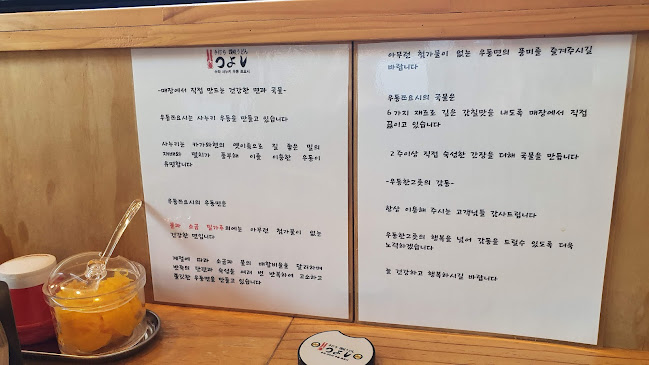 つよし
-매장에서 직접 만드는 건강한 면과 국물-
우동쯔요시는 사누키 우동을 만들고 있습니다
사누키는 카가와현의 옛이름으로 질 좋은 밀의
재배와 멸치가 풍부해 이를 이용한 우동이
유명합니다
우동쯔요시의 우동면은
물과 소금 밀가루외에는 아무런 첨가물이 없는
건강한 면입니다
계절에 따라 소금과 물의 배합비율을 달리하며
반죽의 전련과 숙성을 여러 번 반복하여 고소하고
쫄깃한 우동면을 만들고 있습니다
아무런 첨가물이 없는 우동면의 풍미를 즐겨주시길
바랍니다
우동쯔요시의 국물은
6가지 재료로 깊은 감칠맛을 내도록 매장에서 직접
끓이고 있습니다
2주이상 직접 숙성한 간장을 더해 국물을 만듭니다
-우동한그릇의 감동-
항상 이용해 주시는 고객님들 감사드립니다
우동한그릇의 행복을 넘어 감동을 드릴수 있도록 더욱
노력하겠습니다
늘 건강하고 행복하시길 바랍니다
つよし